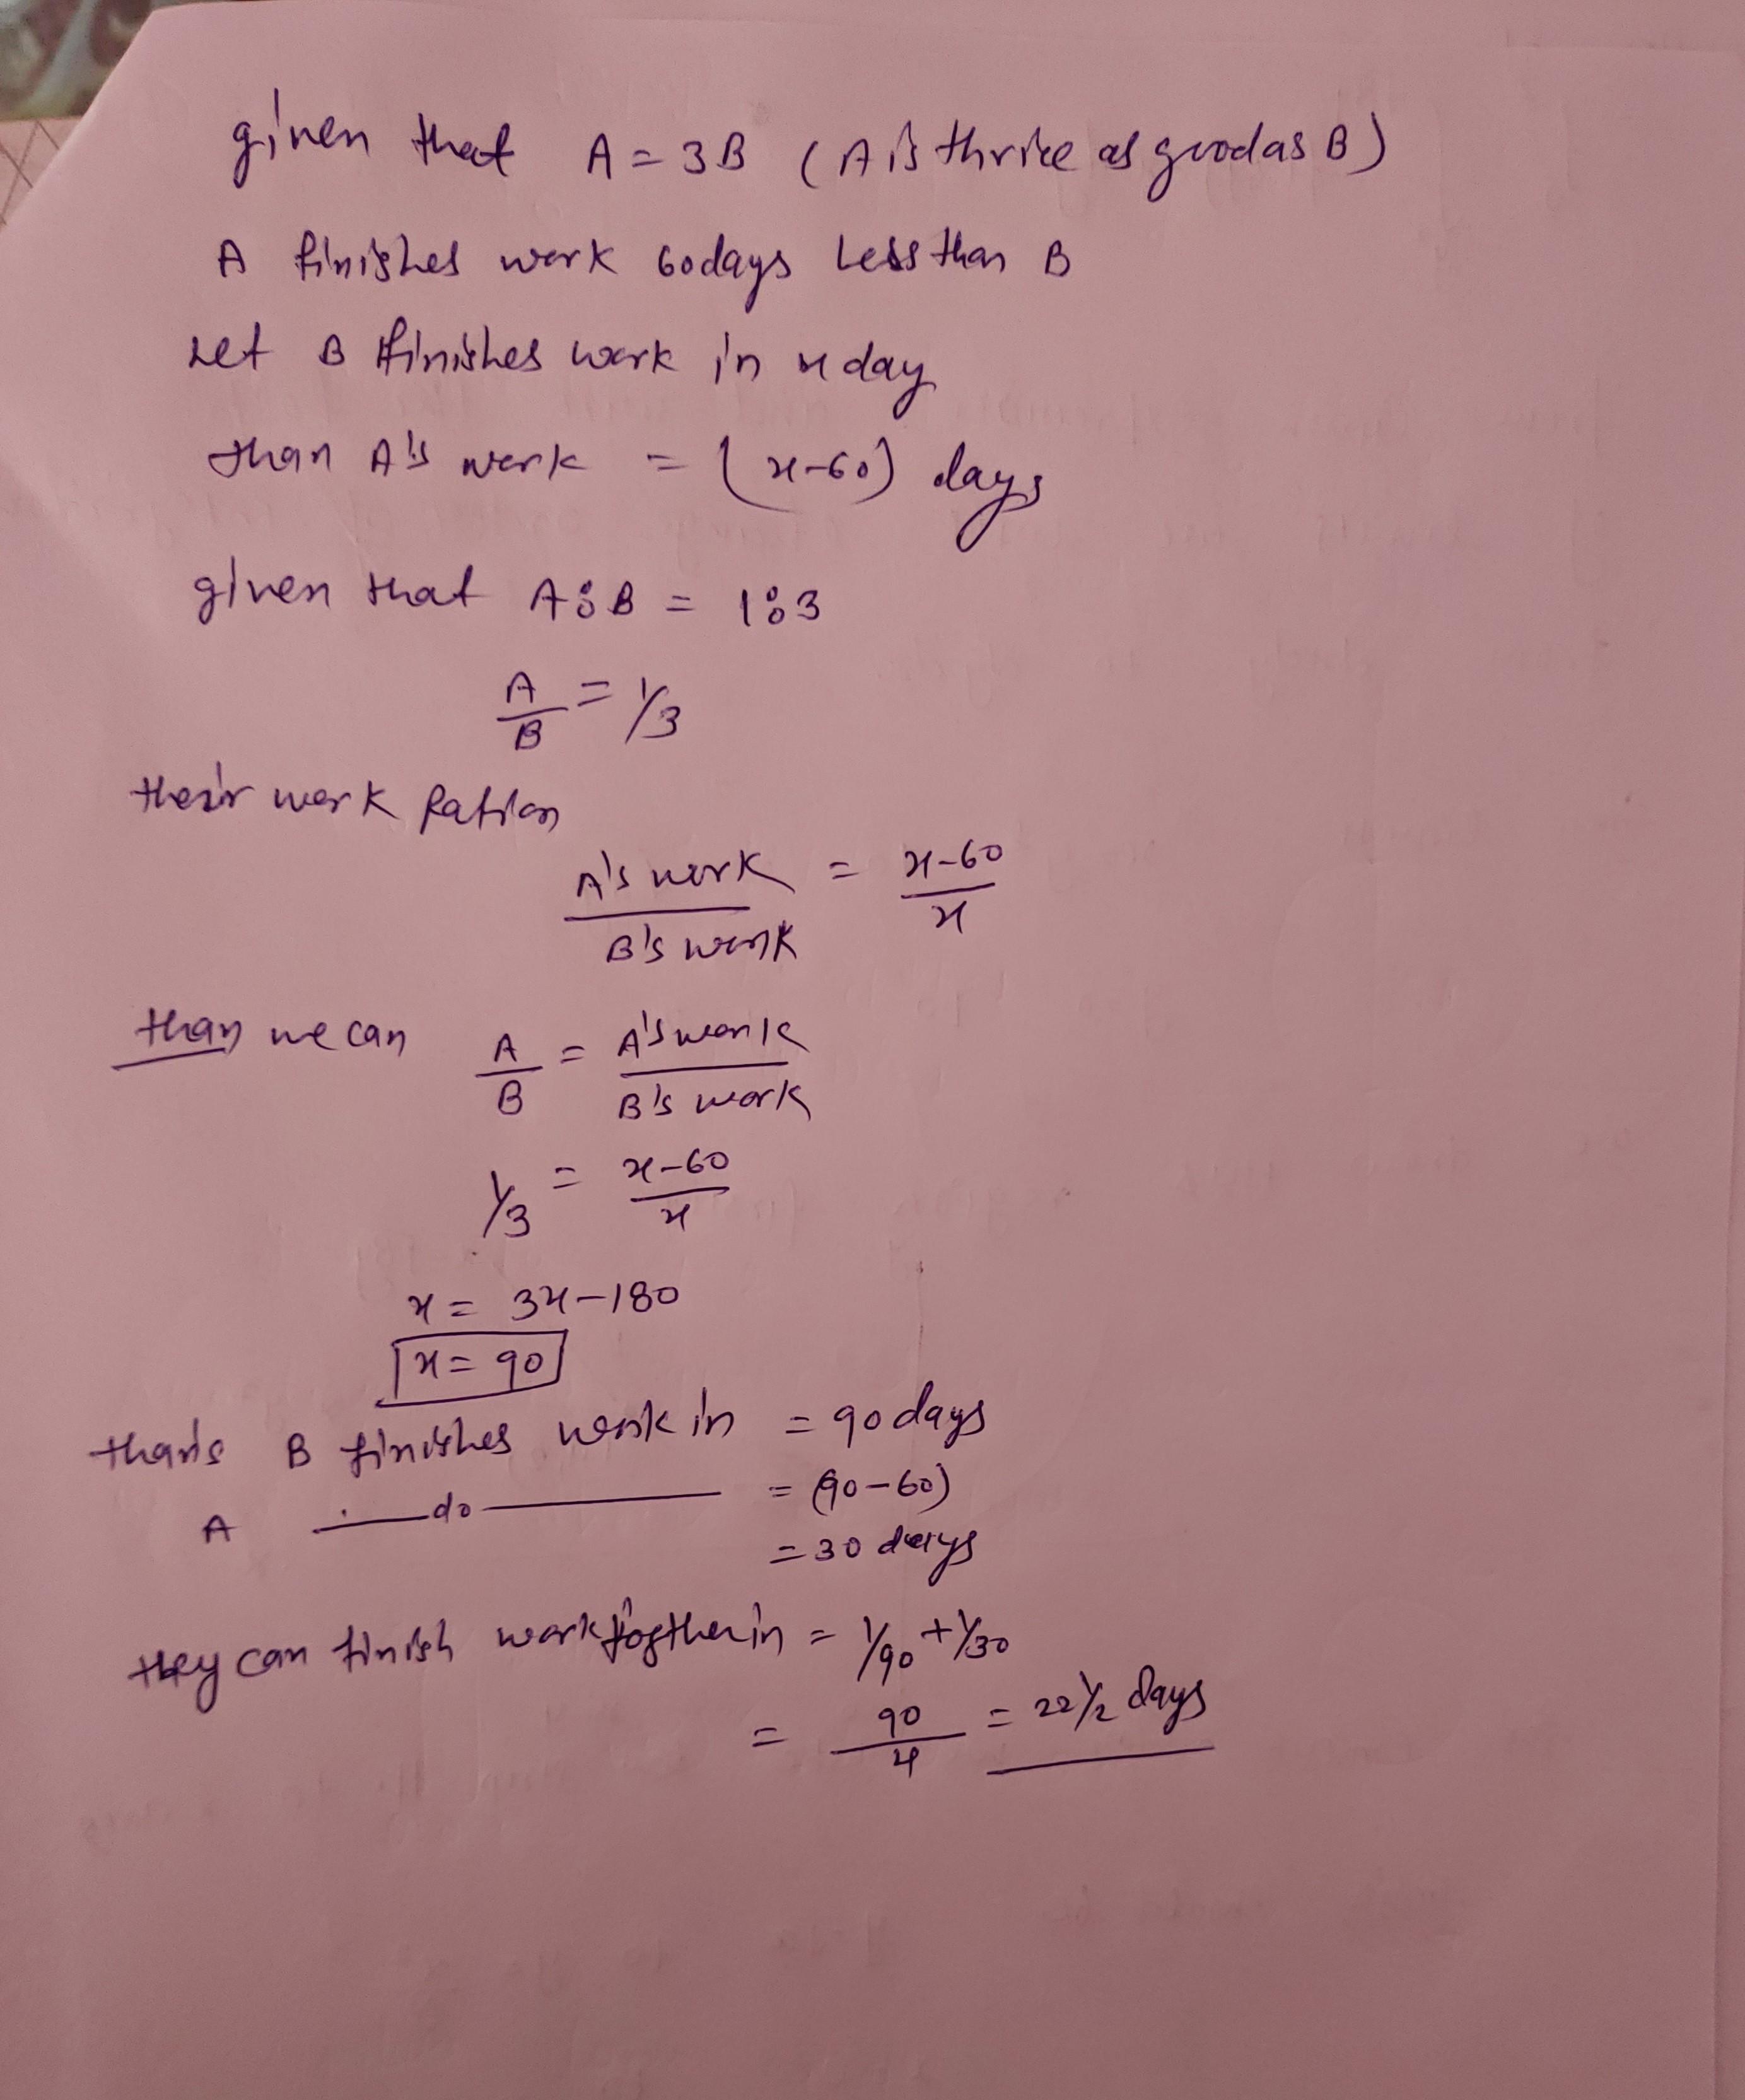 given that A = 3B (A is thrice as good as B)
A finishes work 60days Less than B
Let B finishes work in x day
than A's work = (x-60) days
given that A:B = 1:3
A/B = 1/3
their work Ration
A's work / B's work = x-60 / x
than we can A/B = A's work / B's work
1/3 = x-60 / x
x = 3x-180
x = 90
than's B finishes work in = 90 days
A —do— = (90-60)
= 30 days
they can finish work togther in = 1/90 + 1/30
= 90/4 = 22 1/2 days